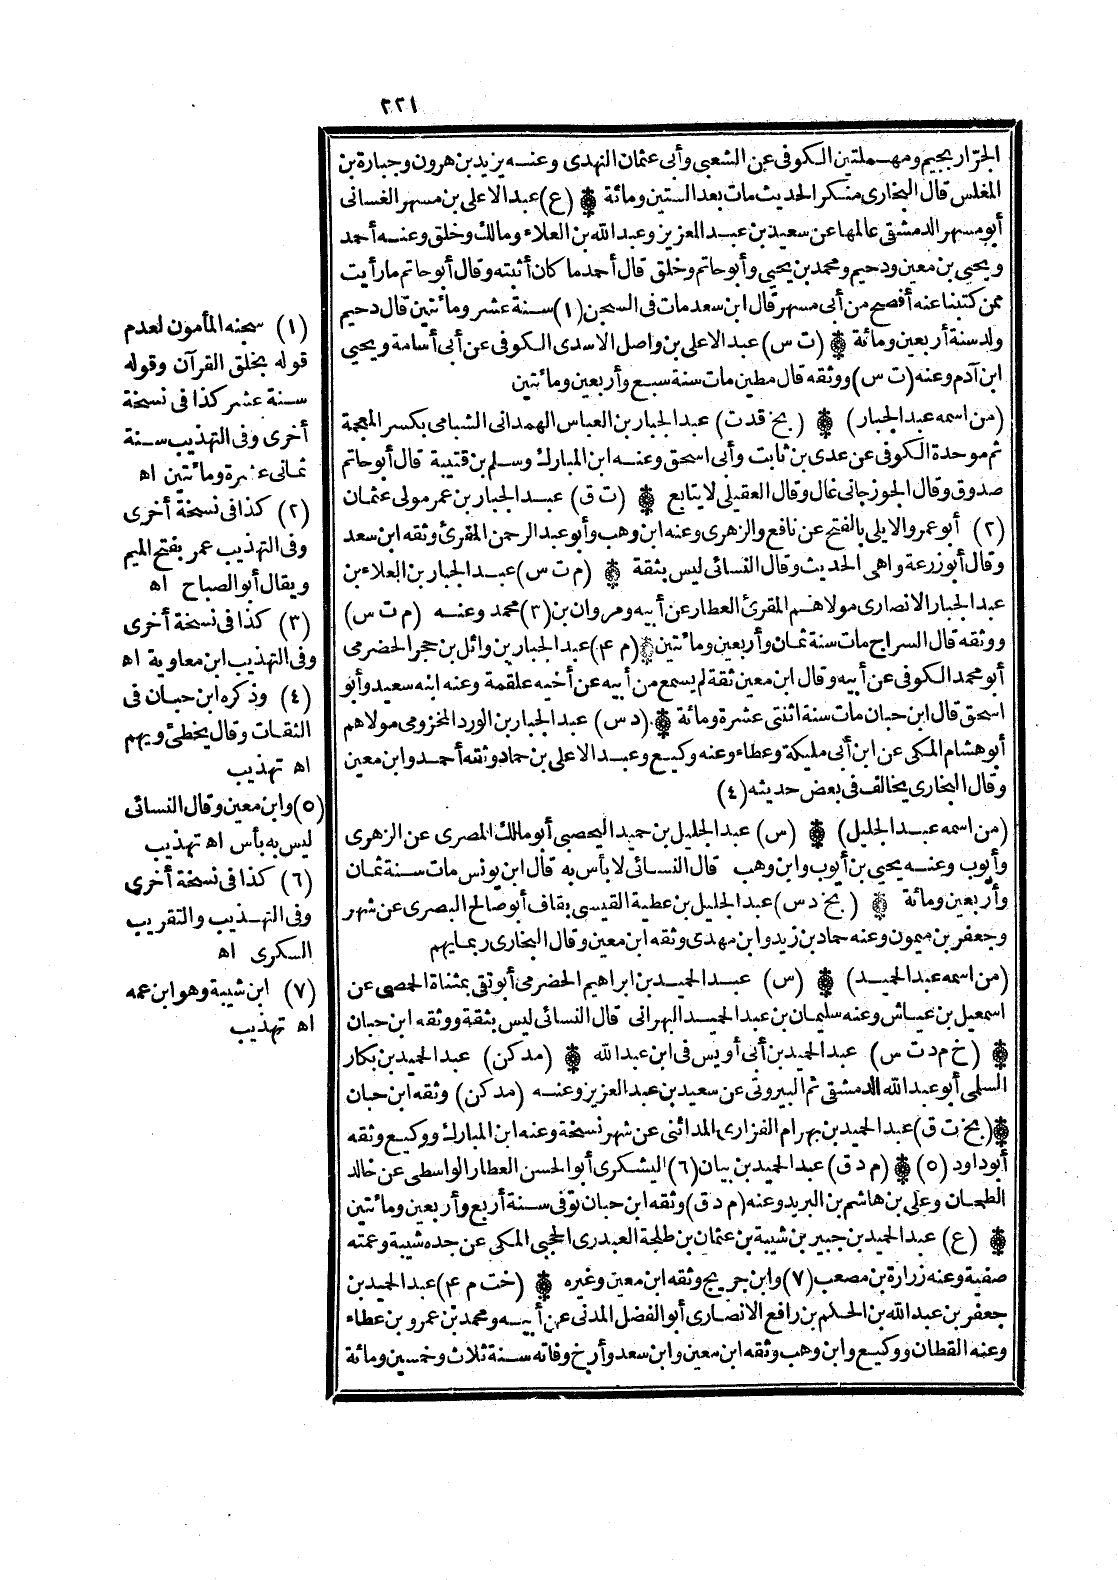 ٢٢١
الجرّار بجيم ومهملتين الكوفى عن الشعبي وأبى عثمان النهدى وعنه يزيد بن هرون وجبارة بن
المغلس قال البخارى منكر الحديث مات بعد الستين ومائة ❁ (ع) عبد الاعلى بن مسهر الغسانى
أبو مسهر الدمشقى عالمها عن سعيد بن عبد العزيز وعبد الله بن العلاء ومالك وخلق وعنه أحمد
ويحيى بن معين ودحيم ومحمد بن يحيى وأبو حاتم وخلق قال أحمد ما كان أثبته وقال أبو حاتم ما رأيت
ممن كتبنا عنه أفصح من أبى مسهر قال ابن سعد مات فى السجن (١) سنة عشر ومائتين قال دحيم
ولد سنة أربعين ومائة ❁ (ت س) عبد الاعلى بن واصل الاسدى الكوفى عن أبى أسامة ويحيى
ابن آدم وعنه (ت س) ووثقه قال مطين مات سنة سبع وأربعين ومائتين
(من اسمه عبد الجبار) ❁ (بخ قد ت) عبد الجبار بن العباس الهمدانى الشبامى بكسر المعجمة
ثم موحدة الكوفى عن عدى بن ثابت وأبى اسحق وعنه ابن المبارك وسلم بن قتيبة قال أبو حاتم
صدوق وقال الجوزجانى غال وقال العقيلى لا يتابع ❁ (ت ق) عبد الجبار بن عمر مولى عثمان
(٢) أبو عمرو الايلى بالفتح عن نافع والزهرى وعنه ابن وهب وأبو عبد الرحمن المقرئ وثقه ابن سعد
وقال أبو زرعة واهى الحديث وقال النسائى ليس بثقة ❁ (م ت س) عبد الجبار بن العلاء بن
عبد الجبار الانصارى مولاهم المقرئ العطار عن أبيه ومروان بن (٣) محمد وعنه (م ت س)
ووثقه قال السراج مات سنة ثمان وأربعين ومائتين ❁ (م ٤) عبد الجبار بن وائل بن حجر الحضرمى
أبو محمد الكوفى عن أبيه وقال ابن معين ثقة لم يسمع من أبيه عن أخيه علقمة وعنه ابنه سعيد وأبو
اسحق قال ابن حبان مات سنة اثنتى عشرة ومائة ❁ (د س) عبد الجبار بن الورد المخزومى مولاهم
أبو هشام المكى عن ابن أبى مليكة وعطاء وعنه وكيع وعبد الاعلى بن حماد وثقه أحمد وابن معين
وقال البخارى يخالف فى بعض حديثه (٤)
(من اسمه عبد الجليل) ❁ (س) عبد الجليل بن حميد اليحصبى أبو مالك المصرى عن الزهرى
وأيوب وعنه يحيى بن أيوب وابن وهب قال النسائى لا بأس به قال ابن يونس مات سنة ثمان
وأربعين ومائة ❁ (بخ د س) عبد الجليل بن عطية القيسى بقاف أبو صالح البصرى عن شهر
وجعفر بن ميمون وعنه حماد بن زيد وابن مهدى وثقه ابن معين وقال البخارى ربما يهم
(من اسمه عبد الحميد) ❁ (س) عبد الحميد بن ابراهيم الحضرمى أبو تقى بمثناة الحمصى عن
اسمعيل بن عياش وعنه سليمان بن عبد الحميد البهرانى قال النسائى ليس بثقة ووثقه ابن حبان
❁ (خ م د ت س) عبد الحميد بن أبى أويس فى ابن عبد الله ❁ (مد كن) عبد الحميد بن بكار
السلمى أبو عبد الله الدمشقى ثم البيروتى عن سعيد بن عبد العزيز وعنه (مد كن) وثقه ابن حبان
❁ (بخ ت ق) عبد الحميد بن بهرام الفزارى المدائنى عن شهر نسخة وعنه ابن المبارك ووكيع وثقه
أبو داود (٥) ❁ (م د ق) عبد الحميد بن بيان (٦) اليشكرى أبو الحسن العطار الواسطى عن خالد
الطحان وعلى بن هاشم بن البريد وعنه (م د ق) وثقه ابن حبان توفى سنة أربع وأربعين ومائتين
❁ (ع) عبد الحميد بن جبير بن شيبة بن عثمان بن طلحة العبدرى الحجبى المكى عن جده شيبة وعمته
صفية وعنه زرارة بن مصعب (٧) وابن جريج وثقه ابن معين وغيره ❁ (خت م ٤) عبد الحميد بن
جعفر بن عبد الله بن الحكم بن رافع الانصارى أبو الفضل المدنى عن أبيه ومحمد بن عمرو بن عطاء
وعنه القطان ووكيع وابن وهب وثقه ابن معين وابن سعد وأرخ وفاته سنة ثلاث وخمسين ومائة
(١) سجنه المأمون لعدم
قوله بخلق القرآن وقوله
سنة عشر كذا فى نسخة
أخرى وفى التهذيب سنة
ثمانى عشرة ومائتين اه
(٢) كذا فى نسخة أخرى
وفى التهذيب عمر بفتح الميم
ويقال أبو الصباح اه
(٣) كذا فى نسخة أخرى
وفى التهذيب ابن معاوية اه
(٤) وذكره ابن حبان فى
الثقات وقال يخطئ ويهم
اه تهذيب
(٥) وابن معين وقال النسائى
ليس به بأس اه تهذيب
(٦) كذا فى نسخة أخرى
وفى التهذيب والتقريب
السكرى اه
(٧) ابن شيبة وهو ابن عمه
اه تهذيب